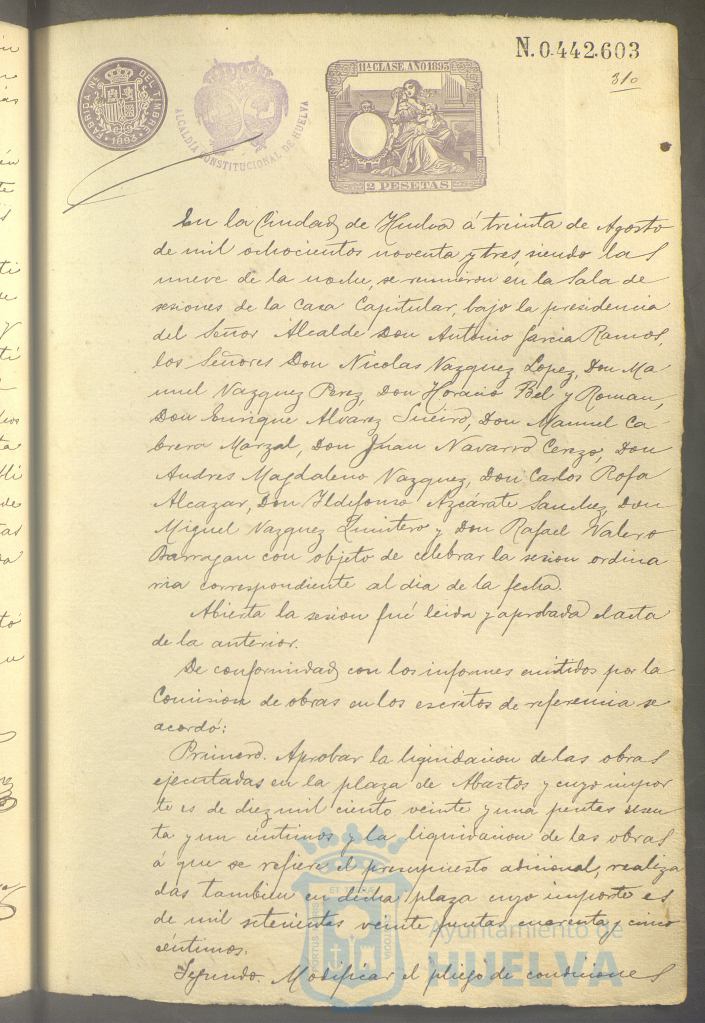 N. 0.442.603
310
FABRICA N. DEL TIMBRE
1893
ALCALDÍA CONSTITUCIONAL DE HUELVA
11ª CLASE AÑO 1893
2 PESETAS
En la Ciudad de Huelva á treinta de Agosto
de mil ochocientos noventa y tres, siendo las
nueve de la noche, se reunieron en la Sala de
sesiones de la Casa Capitular, bajo la presidencia
del Señor Alcalde Don Antonio Garcia Ramos,
los Señores Don Nicolas Vazquez Lopez, Don Ma
nuel Vazquez Perez, Don Horacio Bel y Roman,
Don Enrique Alvarez Sueiro, Don Manuel Ca
brera Marzal, Don Juan Navarro Cerezo, Don
Andres Magdaleno Vazquez, Don Carlos Rofa
Alcazar, Don Ildefonso Azcárate Sanchez, Don
Miguel Vazquez Quintero y Don Rafael Valero
Barragan con objeto de celebrar la sesion ordina
ria correspondiente al dia de la fecha.
Abierta la sesion fué leida y aprobada el acta
de la anterior.
De conformidad con los informes emitidos por la
Comision de obras en los escritos de referencia se
acordó:
Primero. Aprobar la liquidacion de las obras
ejecutadas en la plaza de Abastos y cuyo impor
te es de diez mil ciento veinte y una pesetas sesen
ta y un centimos y la liquidacion de las obras
á que se refiere el presupuesto adicional, realiza
das tambien en dicha plaza cuyo importe es
de mil setecientas veinte pesetas cuarenta y cinco
céntimos.
Segundo. Modificar el pliego de condiciones
Ayuntamiento de
HUELVA